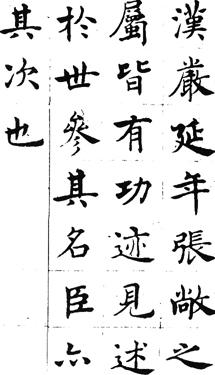 漢嚴延年張敞之
屬皆有功迹見述
於世參其名臣亦
其次也